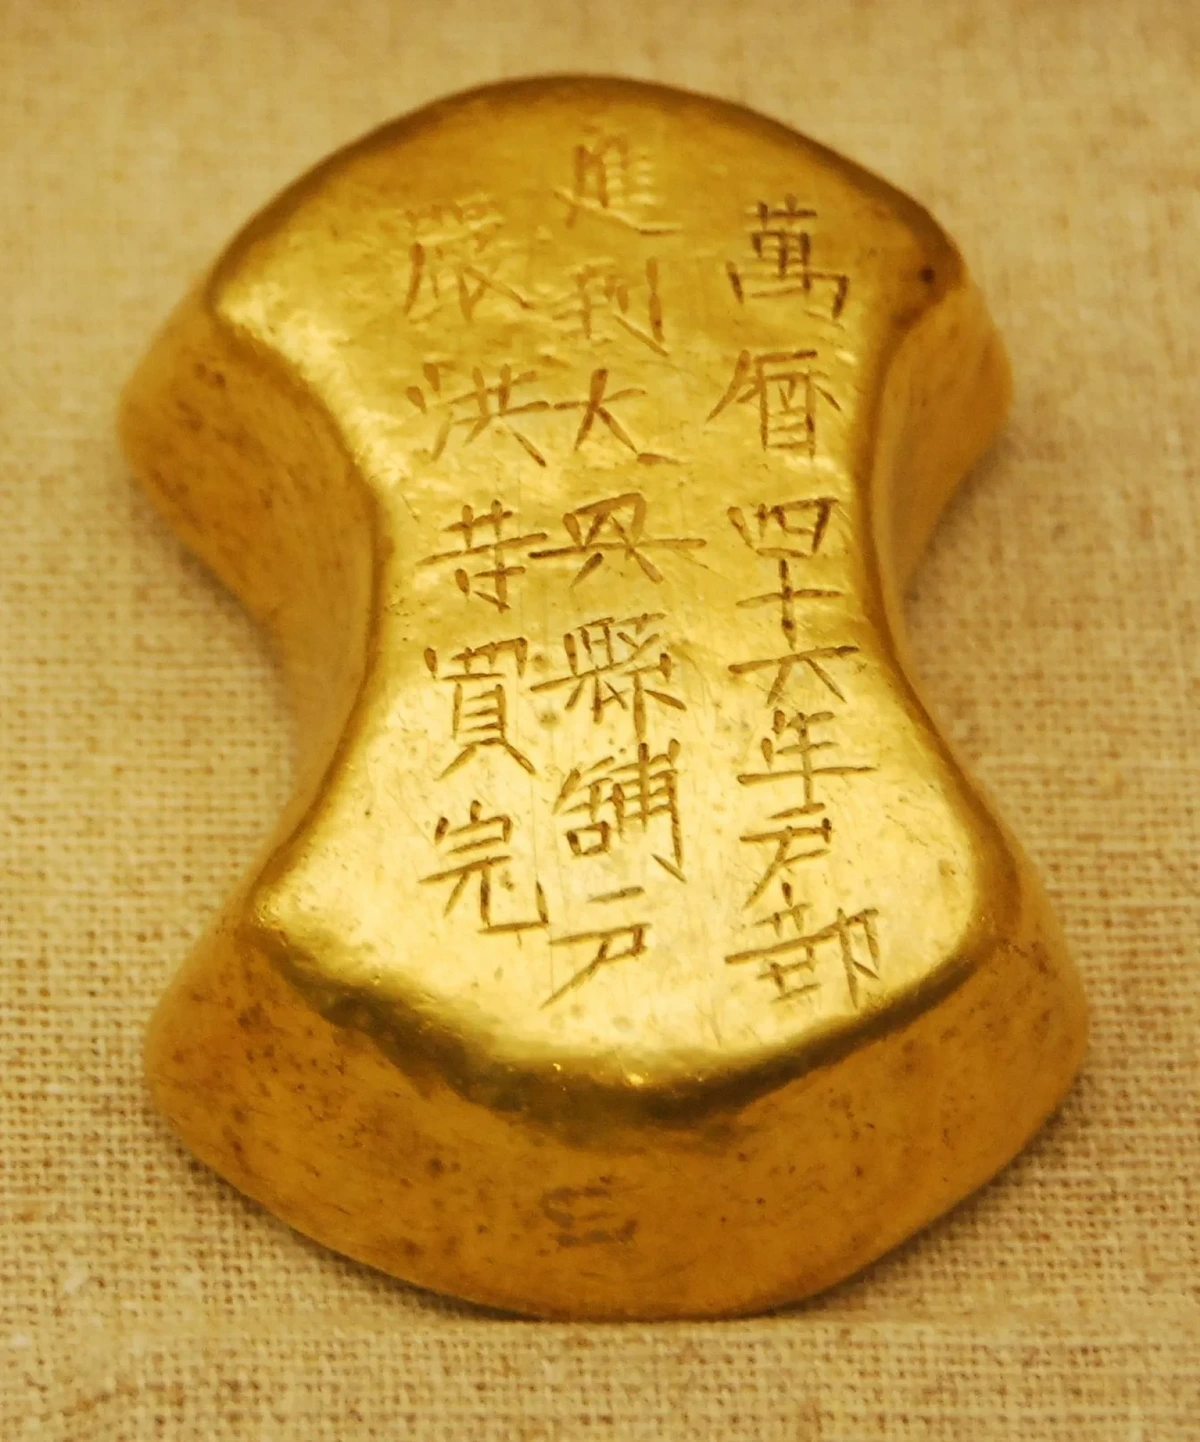 萬曆四十六年戶部
進到大興縣舖戶
嚴洪等買完